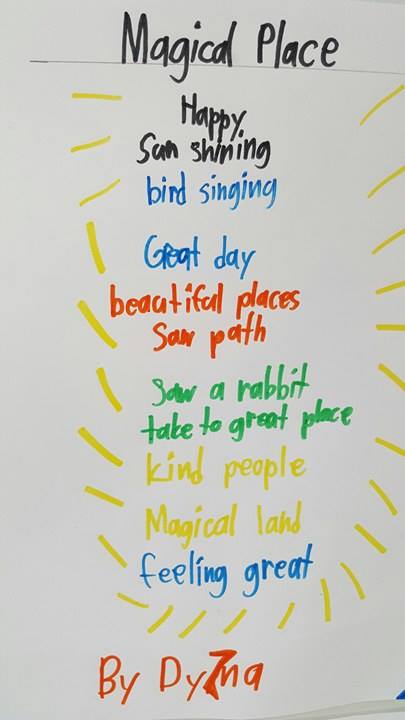 Magical Place
Happy
Sun shining
bird singing
Great day
beautiful places
Saw path
Saw a rabbit
take to great place
kind people
Magical land
feeling great
By Dyzna